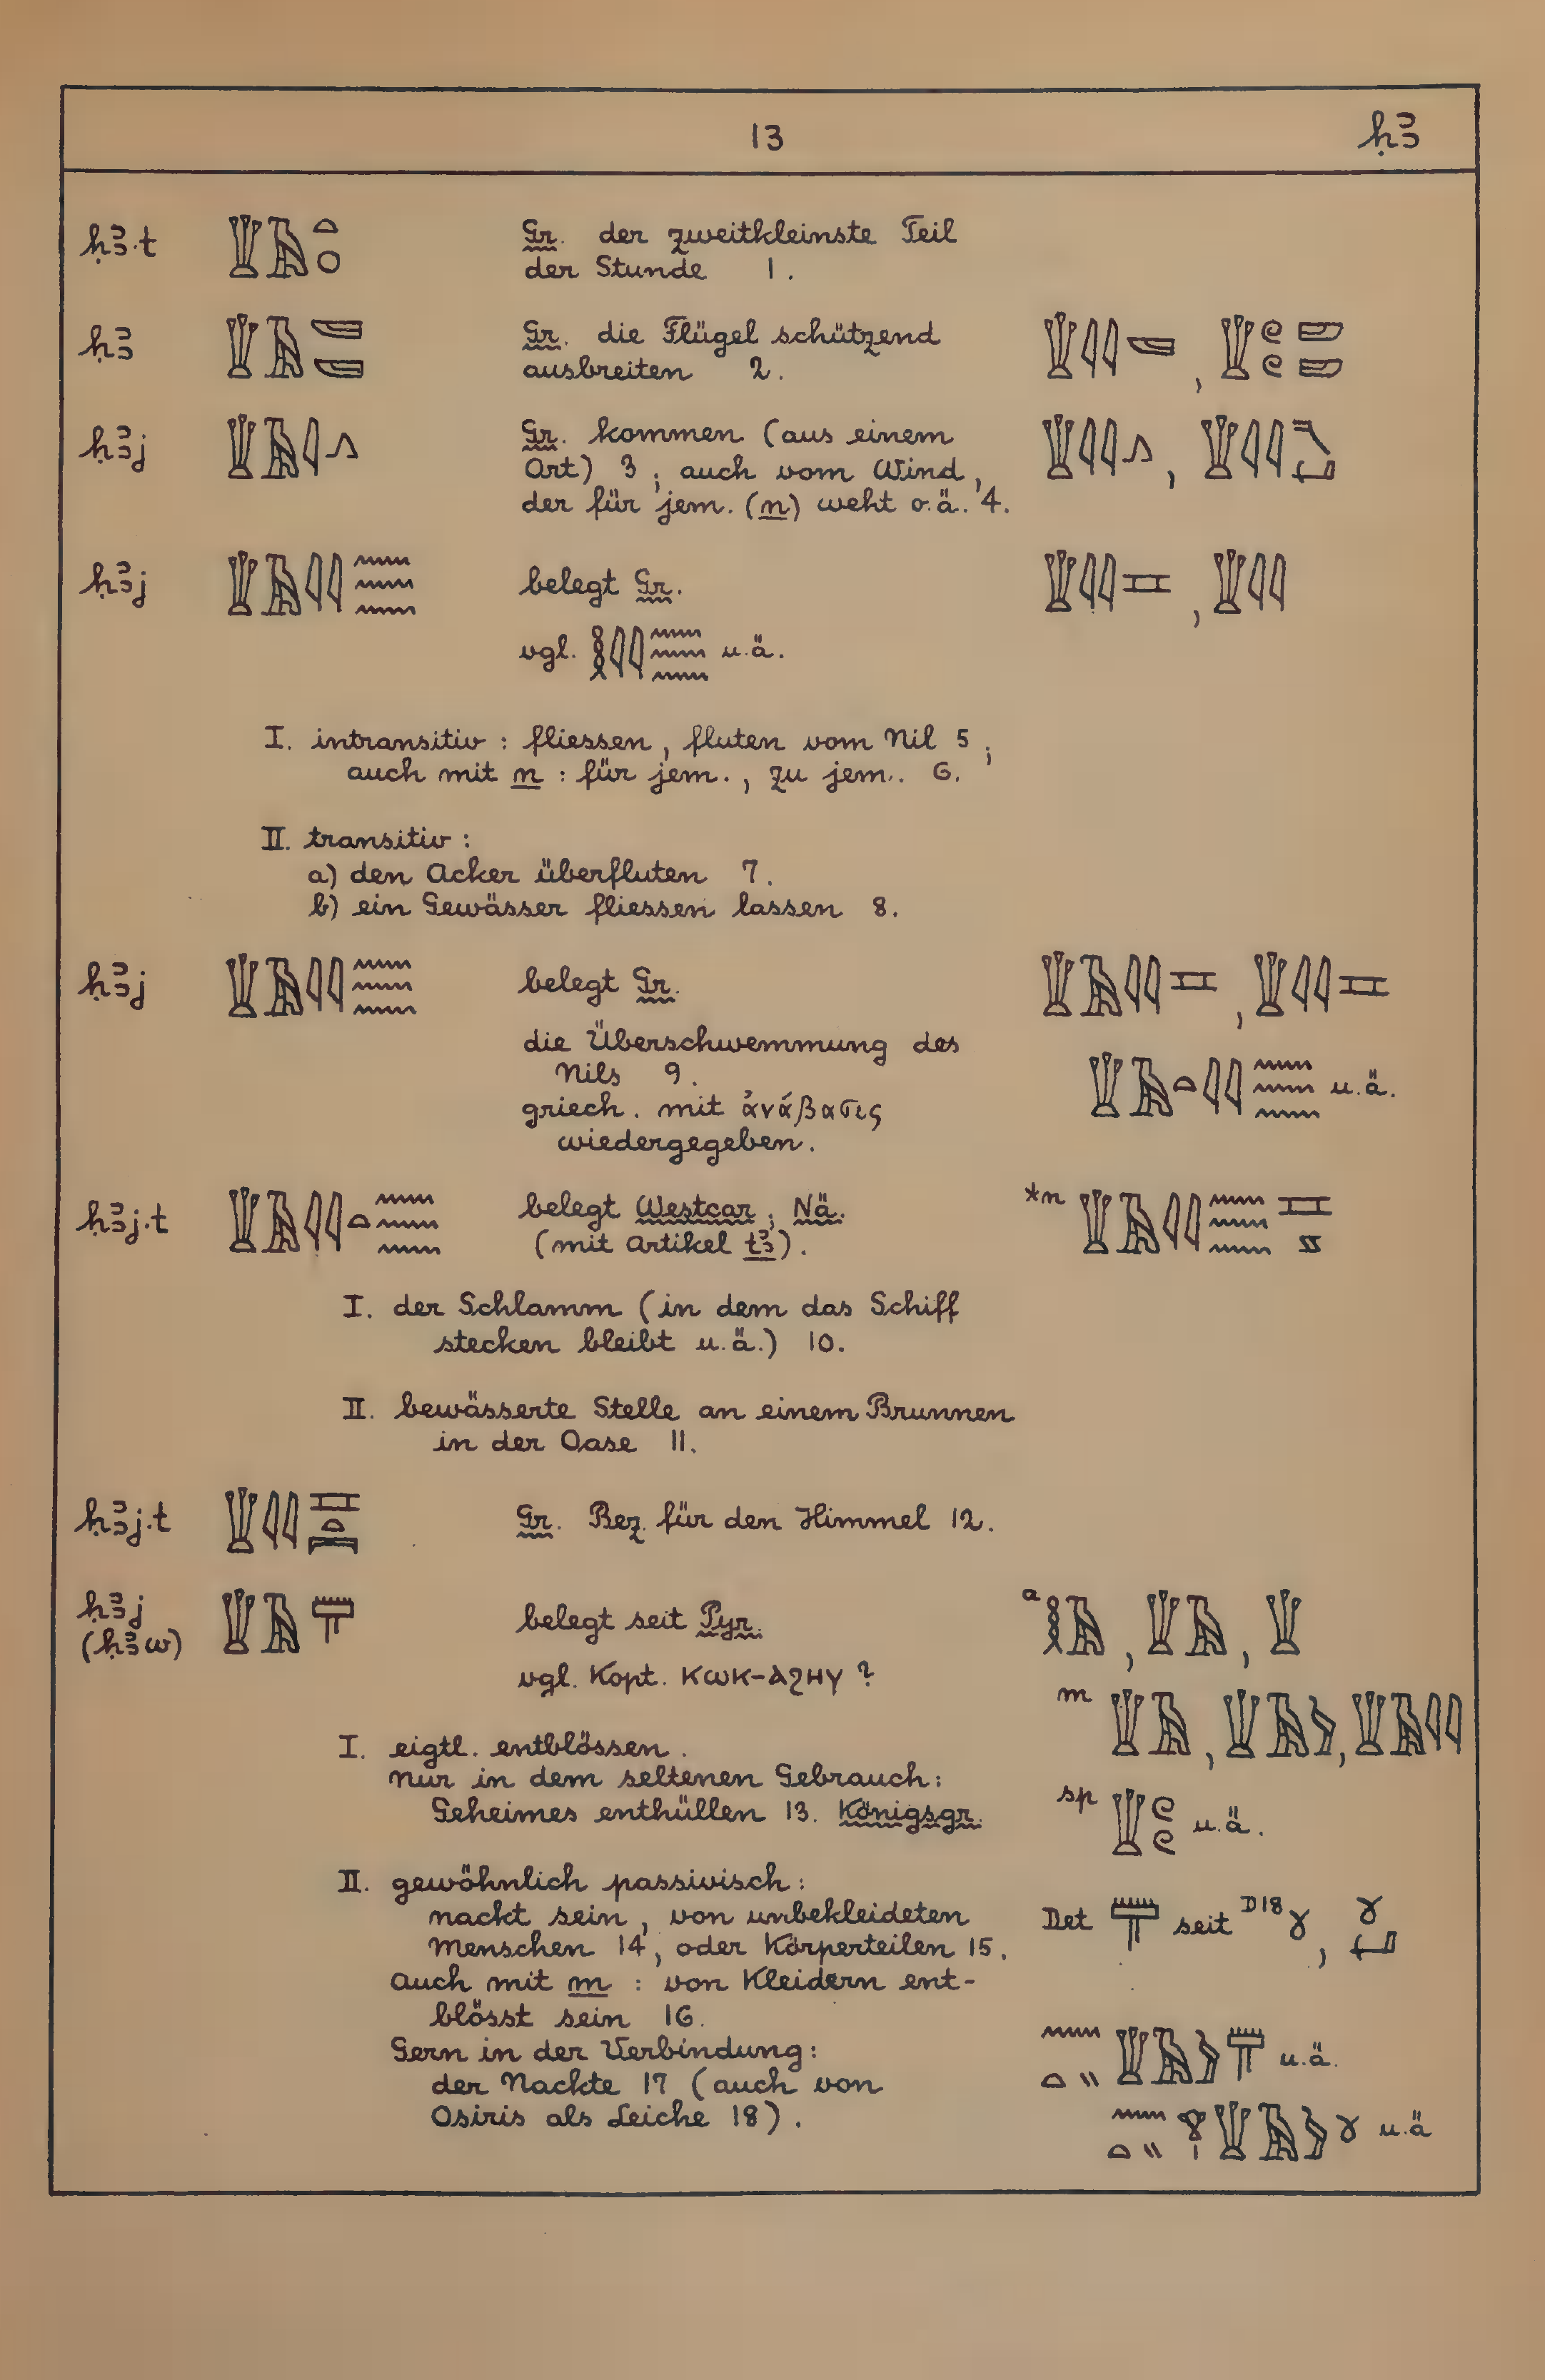 13 ḥꜣ
ḥꜣ.t 𓇉𓄿𓏏𓈒 Gr. der zweitkleinste Teil
der Stunde 1.
ḥꜣ Gr. die Flügel schützend
ausbreiten 2.
ḥꜣj 𓇉𓄿𓇋𓂻 Gr. kommen (aus einem
Ort) 3; auch vom Wind,
der für jem. (n) weht o.ä. 4.
ḥꜣj 𓇉𓄿𓇋𓇋𓈗 belegt Gr. 𓇉𓇋𓇋𓈇, 𓇉𓇋𓇋
vgl. 𓎛𓇋𓇋𓈗 u.ä.
I. intransitiv : fliessen, fluten vom Nil 5;
auch mit n : für jem., zu jem. 6.
II. transitiv :
a) den Acker überfluten 7.
b) ein Gewässer fliessen lassen 8.
ḥꜣj 𓇉𓄿𓇋𓇋𓈗 belegt Gr. 𓇉𓄿𓇋𓇋𓈇, 𓇉𓇋𓇋𓈇
die Überschwemmung des
Nils 9. 𓇉𓄿𓏏𓇋𓇋𓈗 u.ä.
griech. mit ἀνάβασις
wiedergegeben.
ḥꜣj.t 𓇉𓄿𓇋𓇋𓏏𓈗 belegt Westcar; Nä. *n
(mit Artikel tꜣ).
I. der Schlamm (in dem das Schiff
stecken bleibt u.ä.) 10.
II. bewässerte Stelle an einem Brunnen
in der Oase 11.
ḥꜣj.t 𓇉𓇋𓇋𓈇𓏏𓇯 Gr. Bez. für den Himmel 12.
ḥꜣj 𓇉𓄿𓋳 belegt seit Pyr. a 𓎛𓄿, 𓇉𓄿, 𓇉
(ḥꜣw)
vgl. Kopt. ⲕⲱⲕ-ⲁϩⲏⲩ ?
m 𓇉𓄿, 𓇉𓄿𓅱, 𓇉𓄿𓇋𓇋
I. eigtl. entblössen.
nur in dem seltenen Gebrauch:
Geheimes enthüllen 13. Königsgr.
sp 𓇉𓏲𓏲 u.ä.
II. gewöhnlich passivisch:
nackt sein, von unbekleideten
Menschen 14, oder Körperteilen 15.
Det 𓋳 seit D18 𓍱, 𓍱𓂡
auch mit m : von Kleidern ent-
blösst sein 16.
Gern in der Verbindung:
der Nackte 17 (auch von
Osiris als Leiche 18).
𓈖𓏏𓏭𓇉𓄿𓅱𓋳 u.ä.
𓈖𓏏𓏭𓁷𓏤𓇉𓄿𓅱𓍱 u.ä